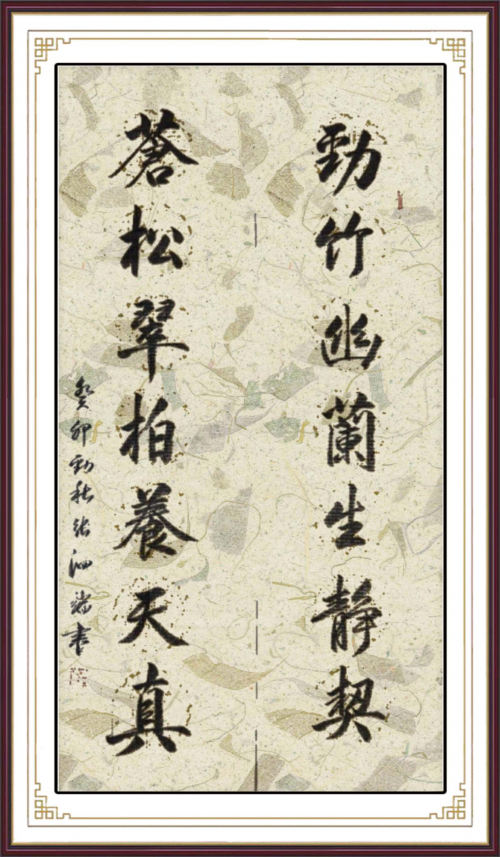 勁竹幽蘭生静契
蒼松翠柏養天真
癸卯初秋张泗瑞書